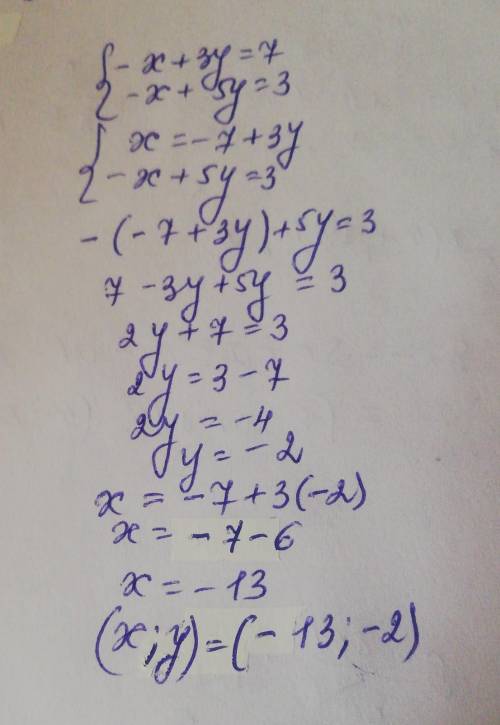 { - x + 3y = 7
{ - x + 5y = 3
{ x = - 7 + 3y
{ - x + 5y = 3
- (- 7 + 3y) + 5y = 3
7 - 3y + 5y = 3
2y + 7 = 3
2y = 3 - 7
2y = - 4
y = - 2
x = - 7 + 3(-2)
x = - 7 - 6
x = - 13
(x; y) = (- 13; -2)